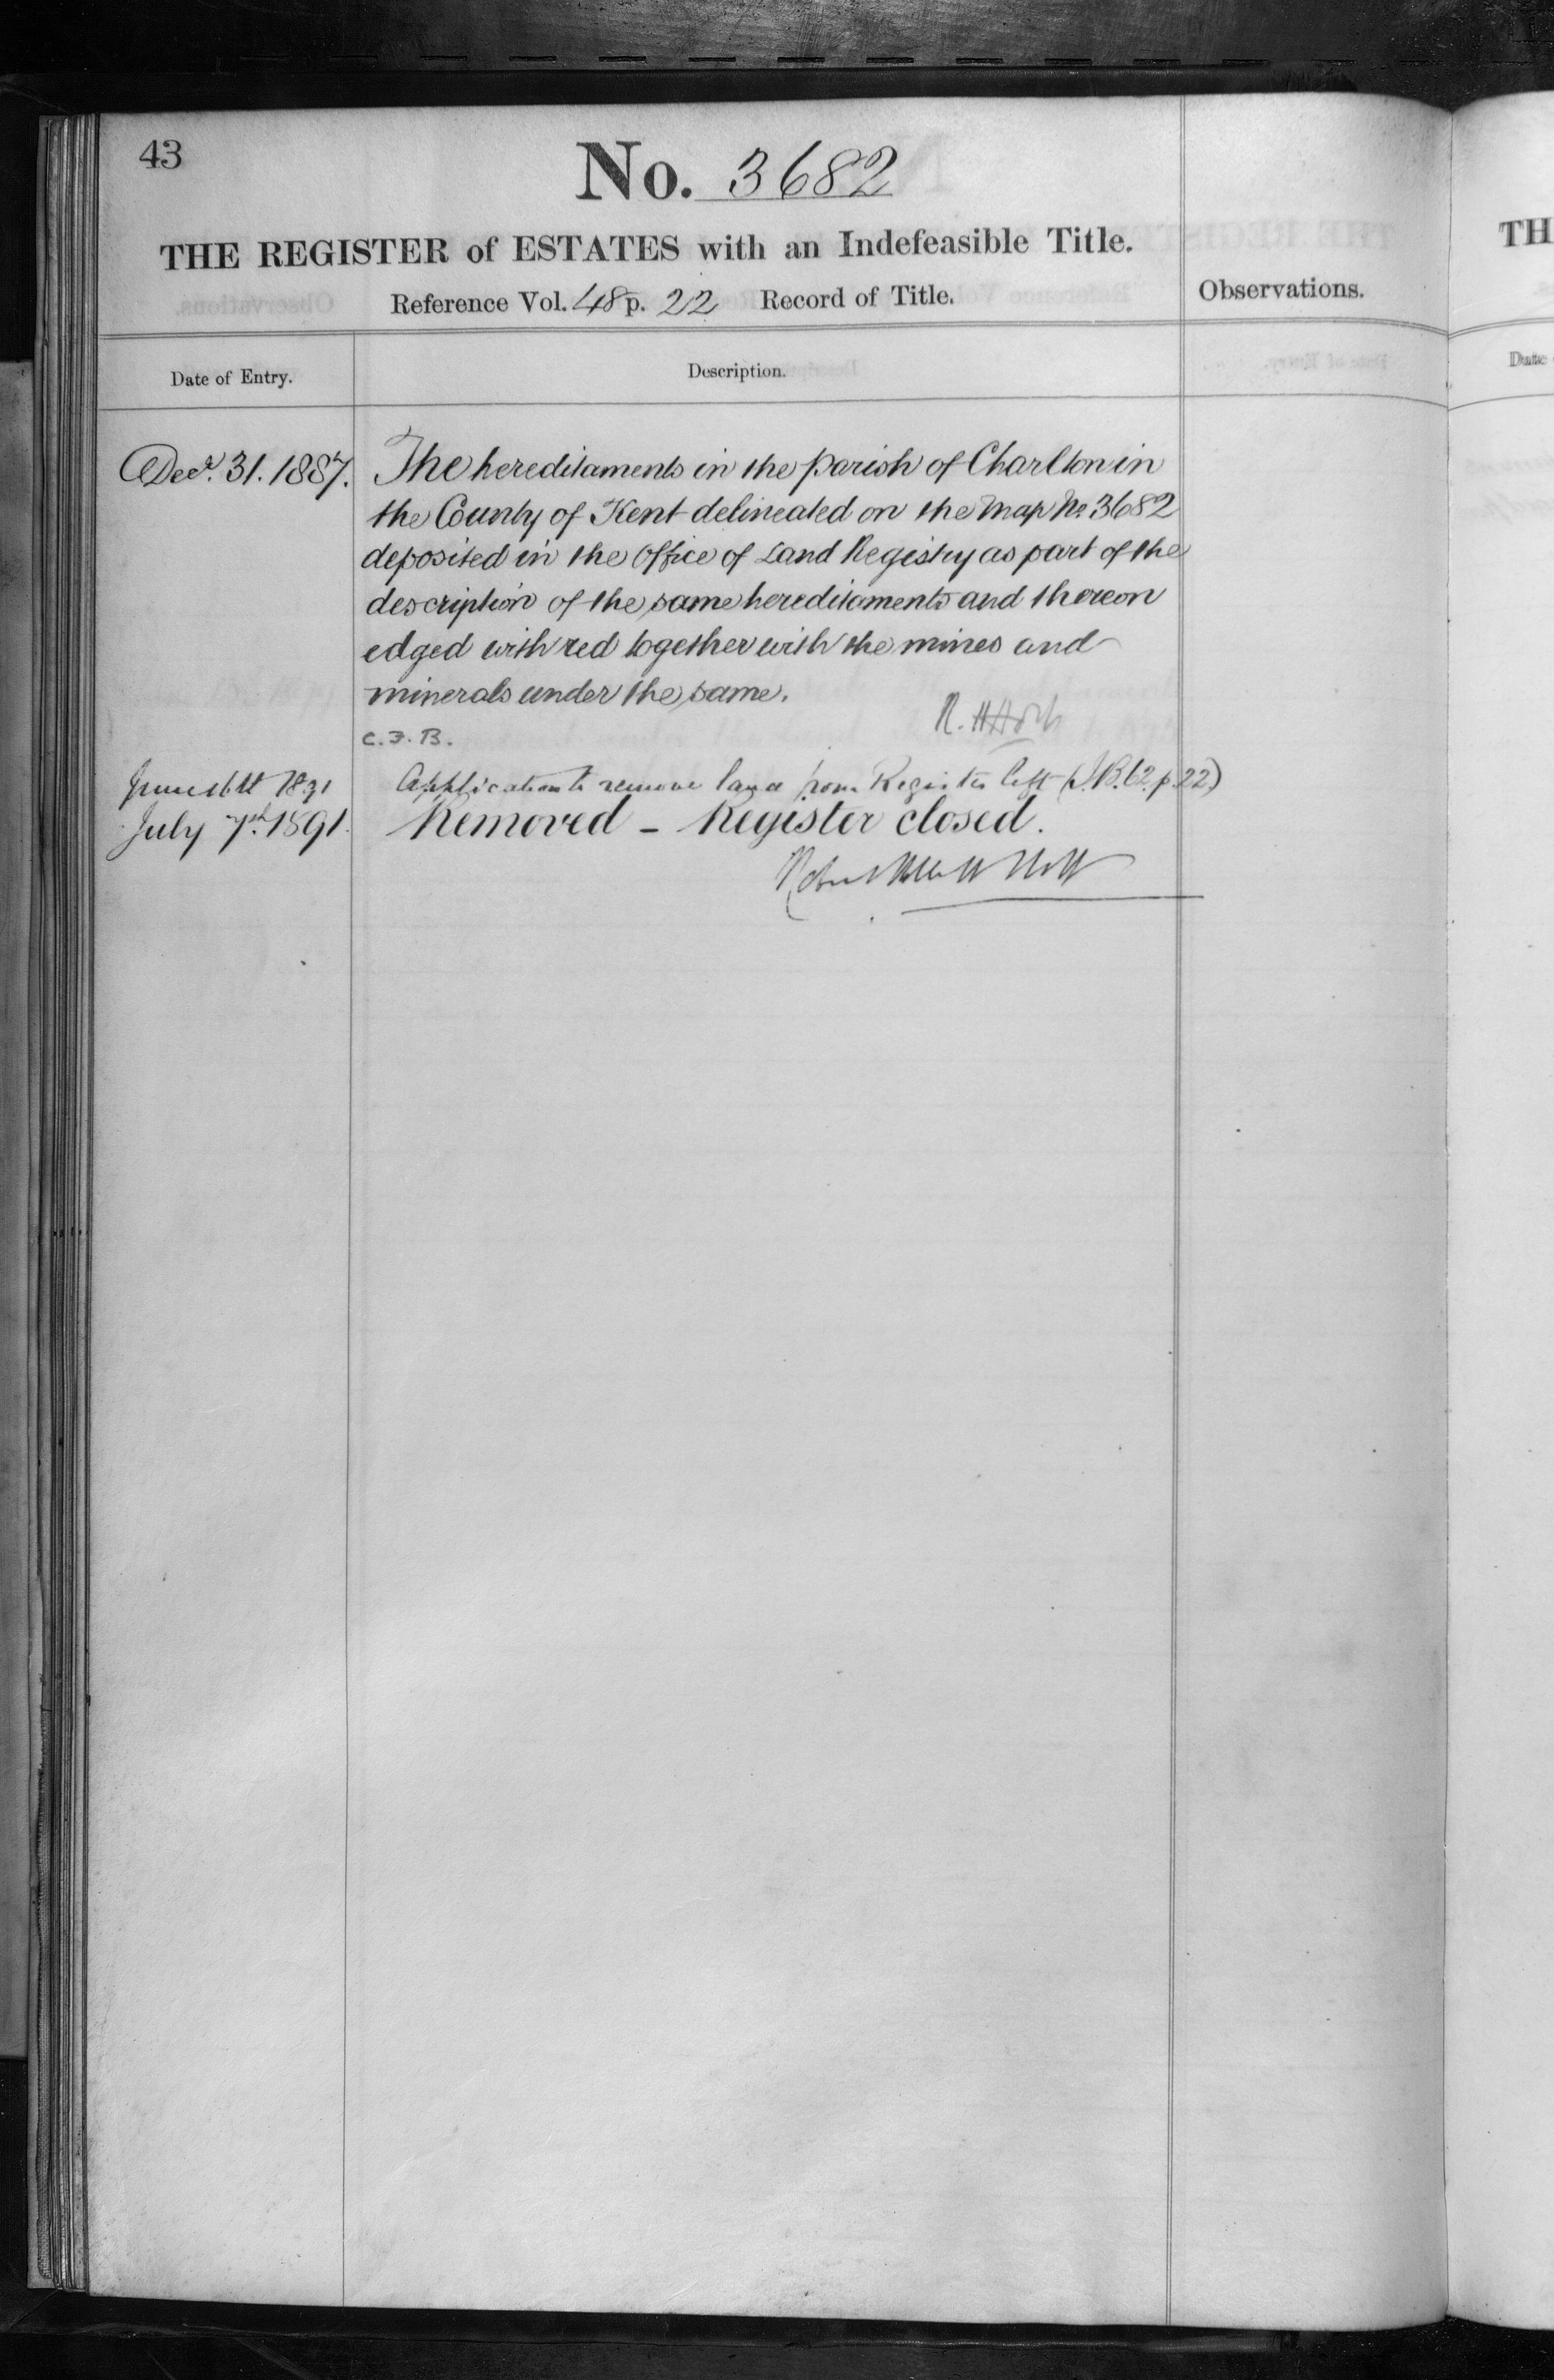 43
No. 3682
THE REGISTER of ESTATES with an Indefeasible Title.
Reference Vol. 48 p. 22 Record of Title.
Observations.
Date of Entry.
Description.
Decr. 31. 1887. The hereditaments in the parish of Charlton in
the County of Kent delineated on the Map No. 3682
deposited in the Office of Land Registry as part of the
description of the same hereditaments and thereon
edged with red together with the mines and
minerals under the same.
C.F.B. R. H Holt
June 16th 1891 Application to remove land from Register left (I.B. 62. p. 22)
July 7th. 1891. Removed - Register closed.
Robert Hallett Holt
TH
Date